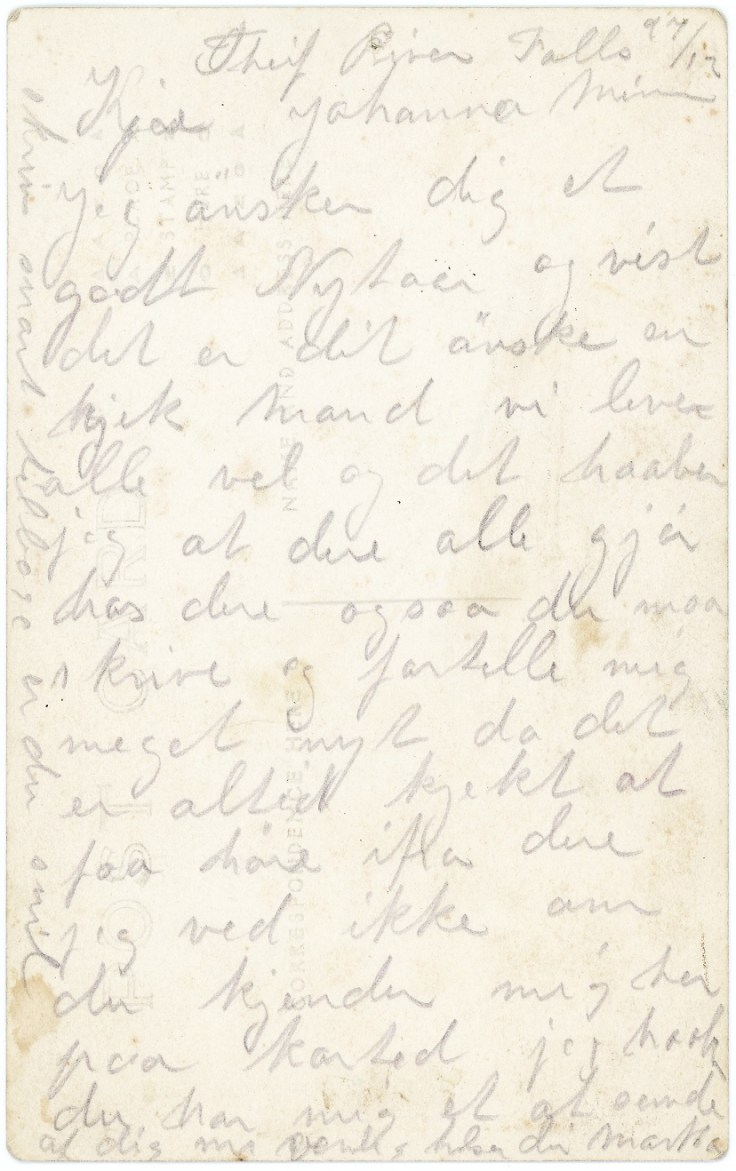 Theif River Falls 27/12
Kjære Johanna Min
Jeg änsker dig et
godt Nytaar og vist
det er dit änske en
kjek Mand vi lever
alle vel og det haaber
jeg at dere alle gjör
hos dere ogsaa du maa
skrive og fortelle mig
meget nyt da det
er altid kjekt at
faa höre ifra dere
jeg ved ikke om
du kjender mig her
paa korted jeg haab
du har mig et at sende
af dig hilser din Martha
skriv snart tilbage er du snil
POST CARD
CORRESPONDENCE HERE
NAME AND ADDRESS HERE
PLACE
STAMP
HERE